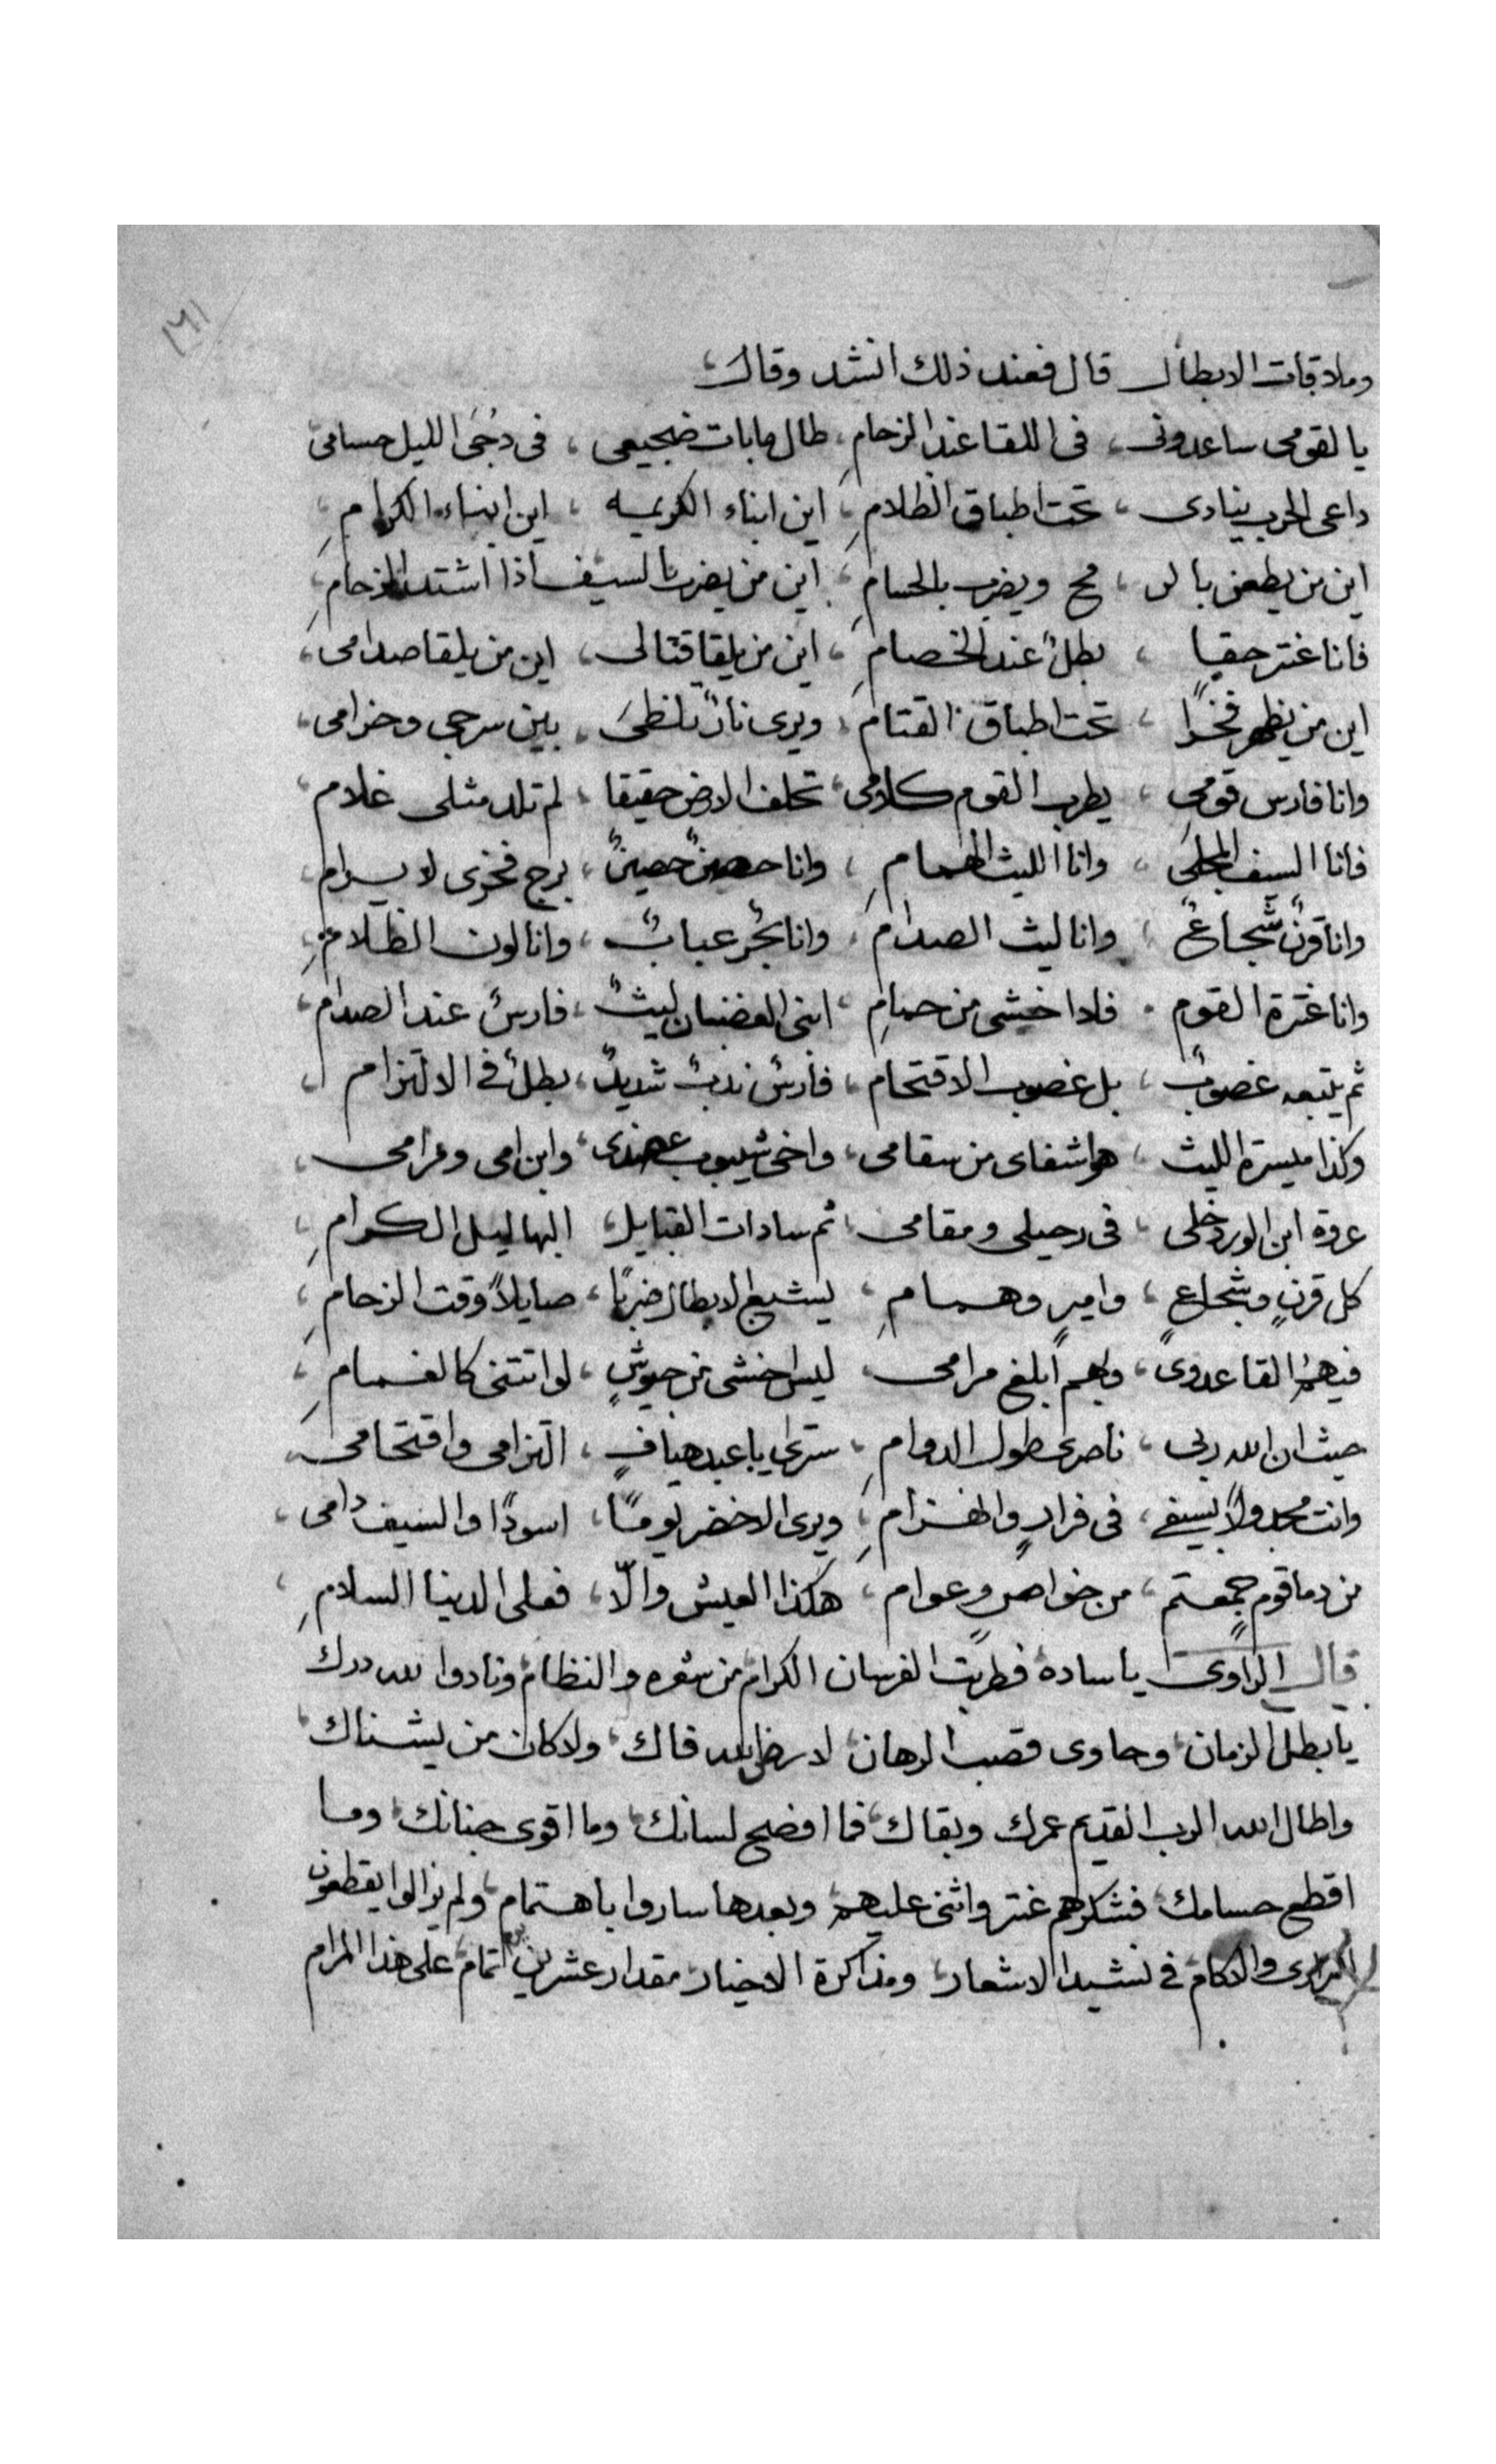 ١٦١
وملاقات الابطال قال فعند ذلك انشد وقال
يالقومى ساعدونى، فى اللقا عند الزحامِ، طال مابات ضجيعى، فى دُجَى الليل حسامى
داعى الحرب ينادى، تحت اطباق الظلامِ، اين ابناء الكريهه، اين ابناء الكرامِ،
اين من يطعن بالر، مح ويضرب بالحسامِ، اين من يضرب بالسيف اذا اشتد الزحامِ،
فانا عنتر حقيا، بطلٌ عند الخصامِ، اين من يلقا قتالى، اين من يلقا صدامى،
اين من يظهر فخرًا، تحت اطباق القتام، ويرى نارٌ تلظى، بين سرجى وحزامى،
وانا فارس قومى، يطرب القوم كلامى، تحلف الارض حقيقا، لم تلد مثلى غلام،
فانا السيف المجلى، وانا الليث الهمامِ، وانا حصنٌ حصينٌ، برج فخرى لا يرام،
وانا قرنٌ شجاعٌ، وانا ليث الصدام، وانا بحرٌ عبابٌ، وانا لون الظلامِ،
وانا عنترة القوم، فلا اخشى من حمامِ، ابنى الغضبان ليثٌ، فارسٌ عند الصدام،
ثم يتبعه غصوبٌ، بل غصوب الاقتحام، فارسٌ ندبٌ شديدٌ، بطلٌ فى الالتزام،
وكذا ميسرة الليث، هو اشفاى من سقامى، واخى شيبوب عضدى، وابن امى ومرامى،
عروة ابن الورد خلى، فى رحيلى ومقامى، ثم سادات القبايل، البهاليل الكرامِ،
كل قرنٍ وشجاعٍ، واميرٍ وهمامِ، يشبع الابطال ضربًا، صايلاً وقت الزحامِ،
فبهم القا عدوى، وبهم ابلغ مرامى، ليس اخشى من جيوشٍ، لو اتتنى كالغمامِ،
حيث ان الله ربى، ناصرى طول الدوامِ، سترى يا عبد هيافٍ، التزامى واقتحامى،
وانت مجدولاً بسيفى، فى فرارٍ وانهزامِ، ويرى الاخضر يومًا، اسودًا والسيف دامى،
من دما قوم جمعتم، من خواصٍ وعوام، هكذا العيش والّا، فعلى الدنيا السلامِ،
قال الراوى يا ساده فطربت الفرسان الكرام من شعره والنظام ونادوا لله درك
يا بطل الزمان، وحاوى قصب الرهان، لا رض الله فاك، ولا كان من يشناك،
واطال الله الرب القديم عمرك وبقاك، فما افصح لسانك، وما اقوى جنانك، وما
اقطع حسامك، فشكرهم عنتر واثنى عليهم، وبعدها ساروا باهتمام، ولم يزالوا يقطعون
البرارى والاكام فى نشيد الاشعار، ومذاكرة الاخبار، مقدار عشرين يوم تمام، على هذا المرام